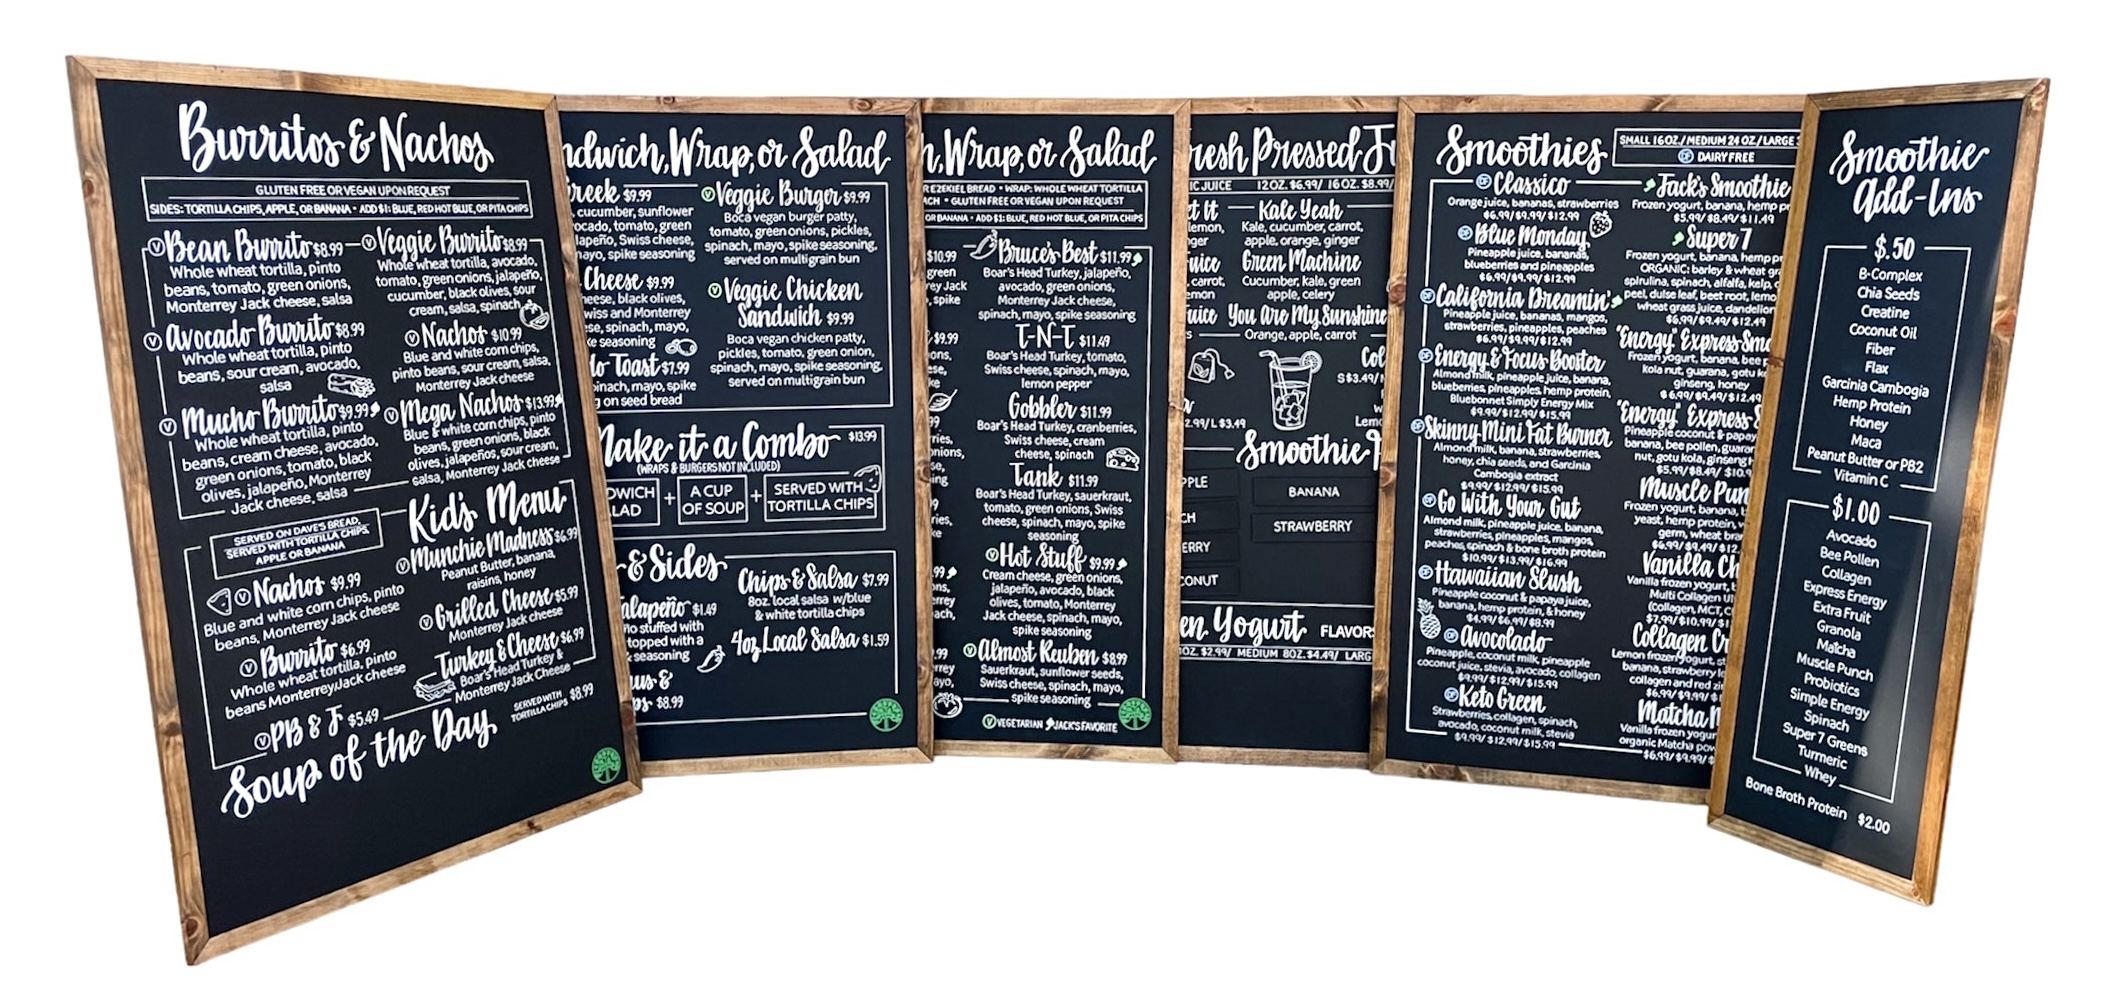 Burritos & Nachos
GLUTEN FREE OR VEGAN UPON REQUEST
SIDES: TORTILLA CHIPS, APPLE, OR BANANA • ADD $1: BLUE, RED HOT BLUE, OR PITA CHIPS
V Bean Burrito $8.99
Whole wheat tortilla, pinto
beans, tomato, green onions,
Monterrey Jack cheese, salsa
V Avocado Burrito $8.99
Whole wheat tortilla, pinto
beans, sour cream, avocado,
salsa
V Mucho Burrito $9.99
Whole wheat tortilla, pinto
beans, cream cheese, avocado,
green onions, tomato, black
olives, jalapeño, Monterrey
Jack cheese, salsa
V Veggie Burrito $8.99
Whole wheat tortilla, avocado,
tomato, green onions, jalapeño,
cucumber, black olives, sour
cream, salsa, spinach
V Nachos $10.99
Blue and white corn chips,
pinto beans, sour cream, salsa,
Monterrey Jack cheese
V Mega Nachos $13.99
Blue & white corn chips, pinto
beans, green onions, black
olives, jalapeños, sour cream,
salsa, Monterrey Jack cheese
Kid's Menu
SERVED ON DAVE'S BREAD,
SERVED WITH TORTILLA CHIPS,
APPLE OR BANANA
V Nachos $9.99
Blue and white corn chips, pinto
beans, Monterrey Jack cheese
V Burrito $6.99
Whole wheat tortilla, pinto
beans Monterrey Jack cheese
V PB & J $5.49
V Munchie Madness $6.99
Peanut Butter, banana,
raisins, honey
V Grilled Cheese $5.99
Monterrey Jack cheese
Turkey & Cheese $6.99
Boar's Head Turkey &
Monterrey Jack Cheese
Soup of the Day
SERVED WITH
TORTILLA CHIPS $8.99
ndwich, Wrap, or Salad
Greek $9.99
, cucumber, sunflower
ocado, tomato, green
lapeño, Swiss cheese,
mayo, spike seasoning
Cheese $9.99
heese, black olives,
wiss and Monterrey
se, spinach, mayo,
ke seasoning
do Toast $7.99
pinach, mayo, spike
g on seed bread
V Veggie Burger $9.99
Boca vegan burger patty,
tomato, green onions, pickles,
spinach, mayo, spike seasoning,
served on multigrain bun
V Veggie Chicken
Sandwich $9.99
Boca vegan chicken patty,
pickles, tomato, green onion,
spinach, mayo, spike seasoning,
served on multigrain bun
Make it a Combo $13.99
(WRAPS & BURGERS NOT INCLUDED)
DWICH
LAD
+
A CUP
OF SOUP
+
SERVED WITH
TORTILLA CHIPS
& Sides
alapeño $1.49
ño stuffed with
topped with a
& seasoning
us &
ps $8.99
Chips & Salsa $7.99
8oz. local salsa w/blue
& white tortilla chips
4oz Local Salsa $1.59
h, Wrap, or Salad
R EZEKIEL BREAD • WRAP: WHOLE WHEAT TORTILLA
ACH • GLUTEN FREE OR VEGAN UPON REQUEST
OR BANANA • ADD $1: BLUE, RED HOT BLUE, OR PITA CHIPS
$10.99
green
rey Jack
, spike
$9.99
Bruce's Best $11.99
Boar's Head Turkey, jalapeño,
avocado, green onions,
Monterrey Jack cheese,
spinach, mayo, spike seasoning
T-N-T $11.49
Boar's Head Turkey, tomato,
Swiss cheese, spinach, mayo,
lemon pepper
Gobbler $11.99
Boar's Head Turkey, cranberries,
Swiss cheese, cream
cheese, spinach
Tank $11.99
Boar's Head Turkey, sauerkraut,
tomato, green onions, Swiss
cheese, spinach, mayo, spike
seasoning
V Hot Stuff $9.99
Cream cheese, green onions,
jalapeño, avocado, black
olives, tomato, Monterrey
Jack cheese, spinach, mayo,
spike seasoning
V Almost Reuben $8.99
Sauerkraut, sunflower seeds,
Swiss cheese, spinach, mayo,
spike seasoning
V VEGETARIAN JACK'S FAVORITE
resh Pressed Ju
IC JUICE 12 OZ. $6.99/ 16 OZ. $8.99/
et It
lemon,
nger
Juice
carrot,
emon
Juice
Kale Yeah
Kale, cucumber, carrot,
apple, orange, ginger
Green Machine
Cucumber, kale, green
apple, celery
You Are My Sunshine
Orange, apple, carrot
Col
S $3.49/
2.99/L $3.49
Lemo
Smoothie
PPLE
CH
ERRY
CONUT
BANANA
STRAWBERRY
en Yogurt FLAVORS
OZ. $2.99/ MEDIUM 8OZ. $4.49/ LARG
Smoothies
SMALL 16 OZ./ MEDIUM 24 OZ./ LARGE 3
DF DAIRY FREE
DF Classico
Orange juice, bananas, strawberries
$6.99/$9.99/$12.99
DF Blue Monday
Pineapple juice, bananas,
blueberries and pineapples
$6.99/$9.99/$12.99
DF California Dreamin'
Pineapple juice, bananas, mangos,
strawberries, pineapples, peaches
$6.99/$9.99/$12.99
DF Energy & Focus Booster
Almond milk, pineapple juice, banana,
blueberries, pineapples, hemp protein,
Bluebonnet Simply Energy Mix
$9.99/$12.99/$15.99
DF Skinny Mini Fat Burner
Almond milk, banana, strawberries,
honey, chia seeds, and Garcinia
Cambogia extract
$9.99/$12.99/$15.99
DF Go With Your Gut
Almond milk, pineapple juice, banana,
strawberries, pineapples, mangos,
peaches, spinach & bone broth protein
$10.99/$13.99/$16.99
DF Hawaiian Slush
Pineapple coconut & papaya juice,
banana, hemp protein, & honey
$4.99/$6.99/$8.99
DF Avocolado
Pineapple, coconut milk, pineapple
coconut juice, stevia, avocado, collagen
$9.99/$12.99/$15.99
DF Keto Green
Strawberries, collagen, spinach,
avocado, coconut milk, stevia
$9.99/$12.99/$15.99
Jack's Smoothie
Frozen yogurt, banana, hemp pr
$5.99/$8.49/$11.49
Super 7
Frozen yogurt, banana, hemp pr
ORGANIC: barley & wheat gra
spirulina, spinach, alfalfa, kelp,
peel, dulse leaf, beet root, lemo
wheat grass juice, dandelion
$6.99/$9.49/$12.49
"Energy" Express Smo
Frozen yogurt, banana, bee p
kola nut, guarana, gotu ko
ginseng, honey
$6.99/$9.49/$12.49
"Energy" Express S
Pineapple coconut & papay
banana, bee pollen, guara
nut, gotu kola, ginseng
$5.99/$8.49/ $10.9
Muscle Pun
Frozen yogurt, banana,
yeast, hemp protein,
germ, wheat bra
$6.99/$9.49/$12.
Vanilla Ch
Vanilla frozen yogurt,
Multi Collagen
(collagen, MCT,
$7.99/$10.99/$1
Collagen Cr
Lemon frozen yogurt, st
banana, strawberry
collagen and red
$6.99/$9.99/$
Matcha
Vanilla frozen yogur
organic Matcha pow
$6.99/$9.99/$
Smoothie
Add-Ins
$.50
B-Complex
Chia Seeds
Creatine
Coconut Oil
Fiber
Flax
Garcinia Cambogia
Hemp Protein
Honey
Maca
Peanut Butter or PB2
Vitamin C
$1.00
Avocado
Bee Pollen
Collagen
Express Energy
Extra Fruit
Granola
Matcha
Muscle Punch
Probiotics
Simple Energy
Spinach
Super 7 Greens
Turmeric
Whey
Bone Broth Protein $2.00